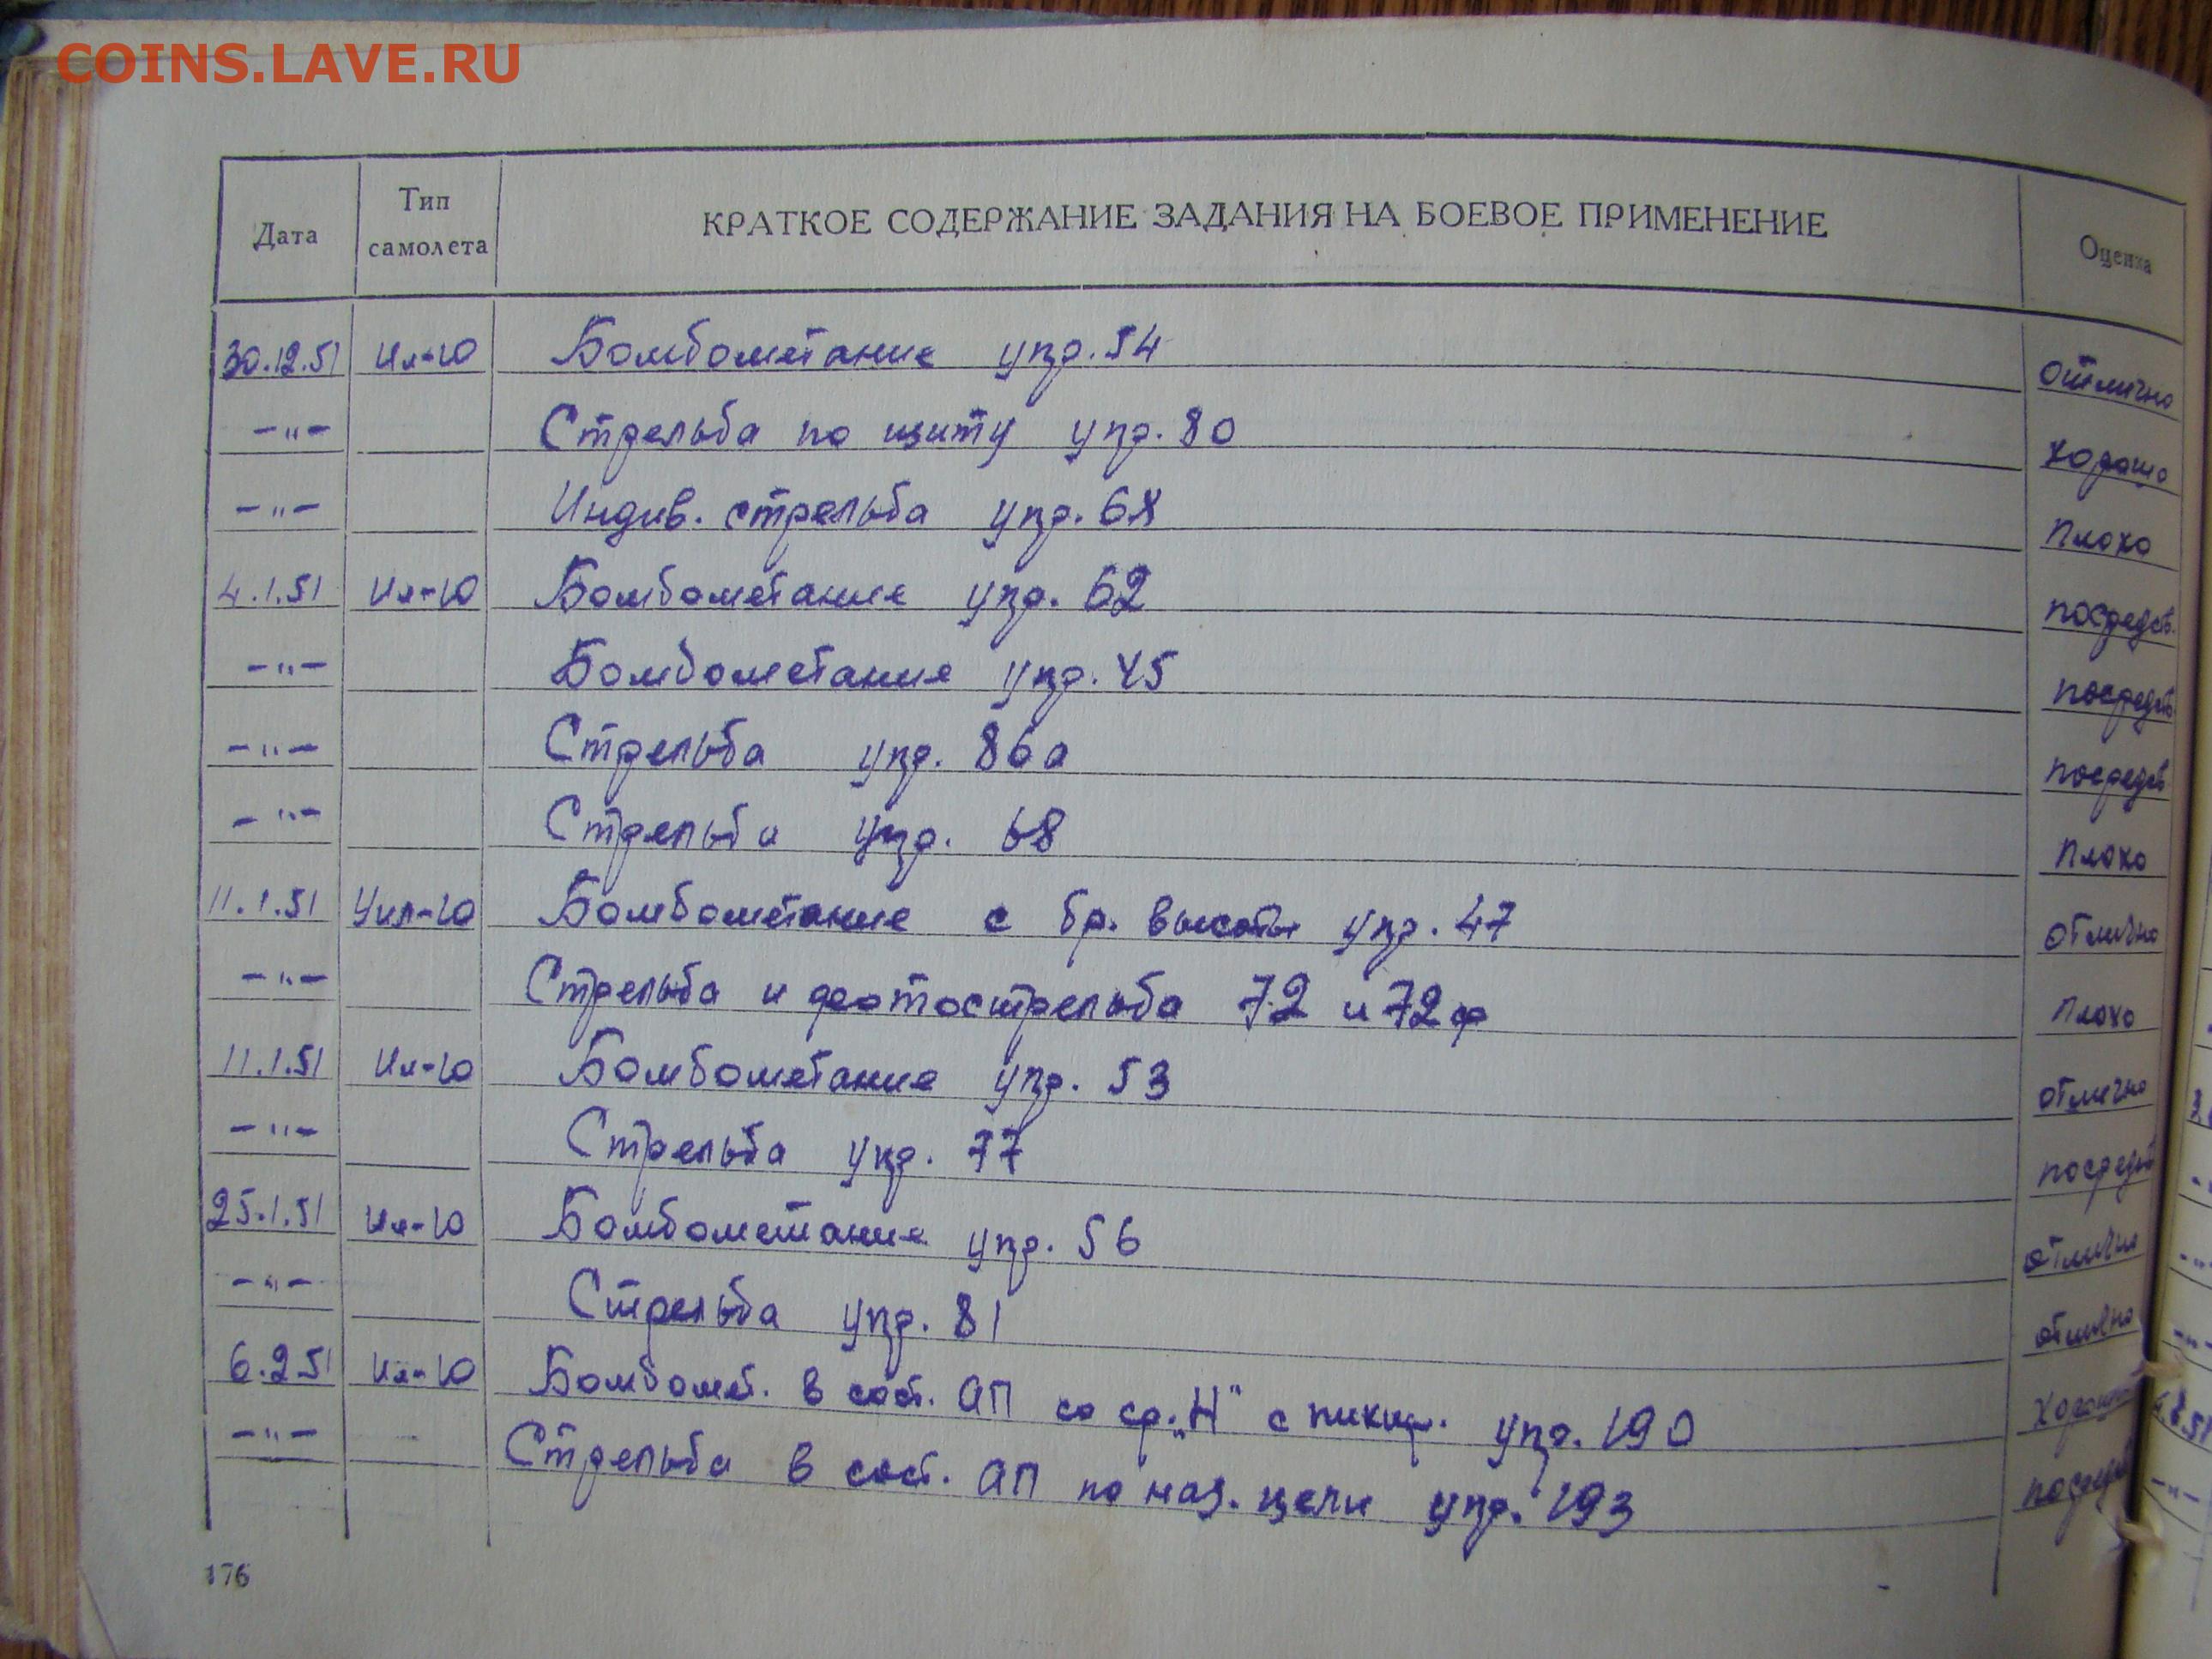 COINS.LAVE.RU
Дата Тип самолета КРАТКОЕ СОДЕРЖАНИЕ ЗАДАНИЯ НА БОЕВОЕ ПРИМЕНЕНИЕ Оценка
30.12.51 Ил-10 Бомбометание упр. 54 отлично
-"- Стрельба по щиту упр. 80 хорошо
-"- Индив. стрельба упр. 68 плохо
4.1.51 Ил-10 Бомбометание упр. 62 посредств.
-"- Бомбометание упр. 45 посредств
-"- Стрельба упр. 86а посредств
-"- Стрельба упр. 68 плохо
11.1.51 Уил-10 Бомбометание с бр. высоты упр. 47 отлично
-"- Стрельба и фотострельба 72 и 72ф плохо
11.1.51 Ил-10 Бомбометание упр. 53 отлично
-"- Стрельба упр. 77 посредств
25.1.51 Ил-10 Бомбометание упр. 56 отлично
-"- Стрельба упр. 81 отлично
6.2.51 Ил-10 Бомбомет. в сост. АП со ср. "Н" с пикир. упр. 190 хорошо
-"- Стрельба в сост. АП по наз. цели упр. 193 посредств
176